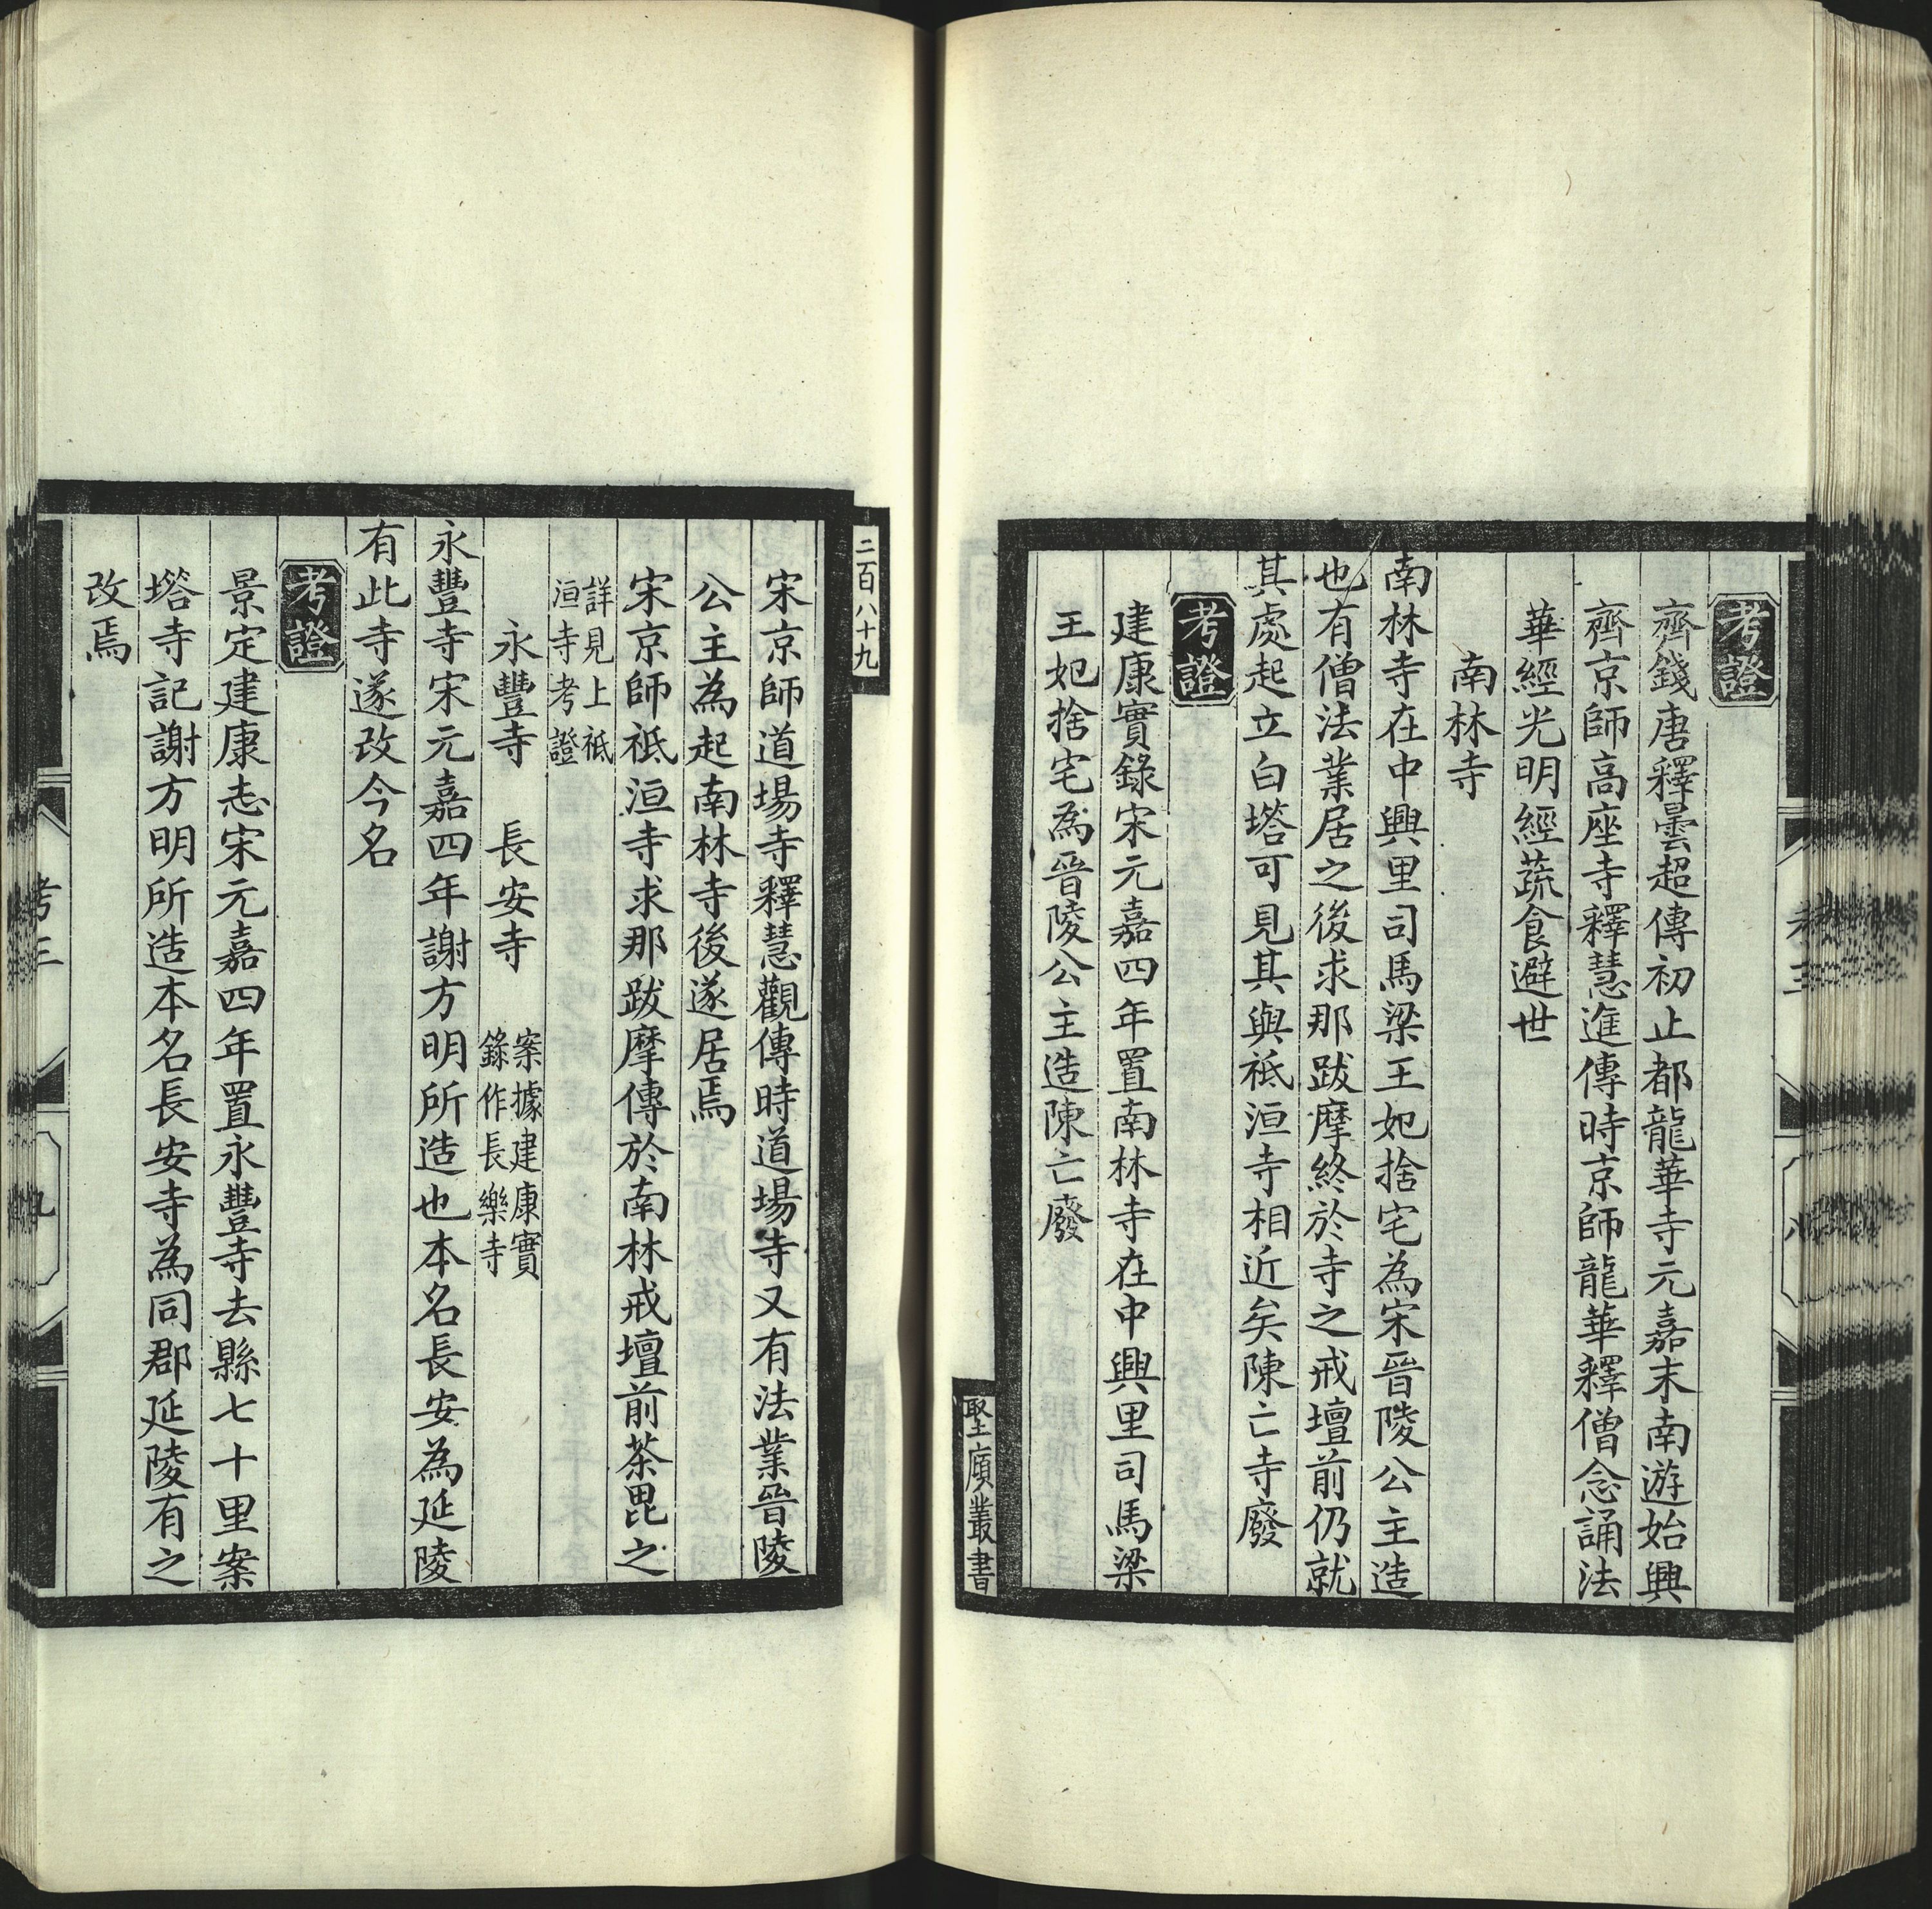 考證
齊錢唐釋曇超傳初止都龍華寺元嘉末南遊始興
齊京師高座寺釋慧進傳時京師龍華釋僧念誦法
華經光明經蔬食避世
南林寺
南林寺在中興里司馬梁王妃捨宅為宋晉陵公主造
也有僧法業居之後求那跋摩終於寺之戒壇前仍就
其處起立白塔可見其與祗洹寺相近矣陳亡寺廢
考證
建康實錄宋元嘉四年置南林寺在中興里司馬梁
王妃捨宅為晉陵公主造陳亡廢
埾廎叢書
二百八十九
宋京師道場寺釋慧觀傳時道場寺又有法業晉陵
公主為起南林寺後遂居焉
宋京師祗洹寺求那跋摩傳於南林戒壇前茶毘之
詳見上祗
洹寺考證
永豐寺　長安寺　案據建康實
錄作長樂寺
永豐寺宋元嘉四年謝方明所造也本名長安為延陵
有此寺遂改今名
考證
景定建康志宋元嘉四年置永豐寺去縣七十里案
塔寺記謝方明所造本名長安寺為同郡延陵有之
改焉
考三
九